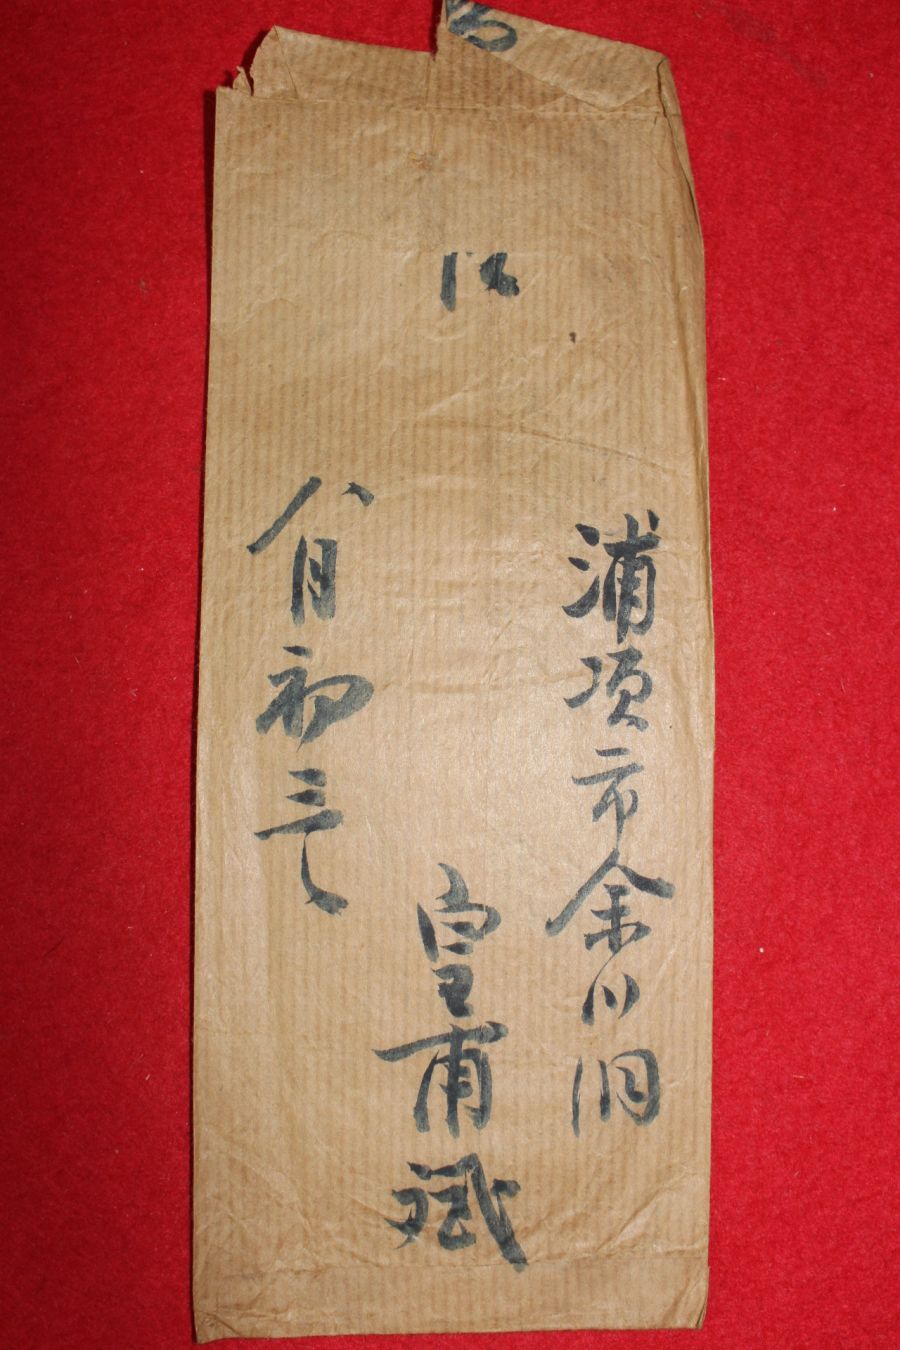 浦項市余川洞
皇甫斌
八月初三